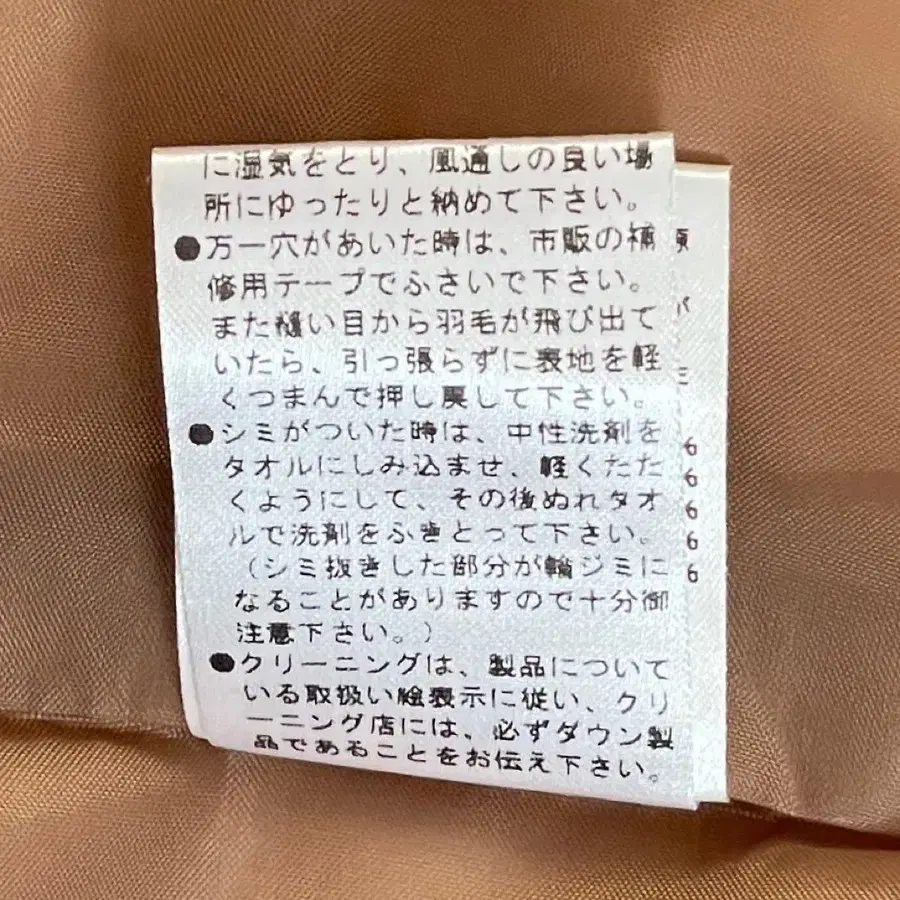 に湿気をとり、風通しの良い場
所にゆったりと納めて下さい。
●万一穴があいた時は、市販の補
修用テープでふさいで下さい。
また縫い目から羽毛が飛び出て
いたら、引っ張らずに表地を軽
くつまんで押し戻して下さい。
●シミがついた時は、中性洗剤を
タオルにしみ込ませ、軽くたた
くようにして、その後ぬれタオ
ルで洗剤をふきとって下さい。
(シミ抜きした部分が輪ジミに
なることがありますので十分御
注意下さい。)
●クリーニングは、製品について
いる取扱い絵表示に従い、クリ
ーニング店には、必ずダウン製
品であることをお伝え下さい。
6
6
6
6
6